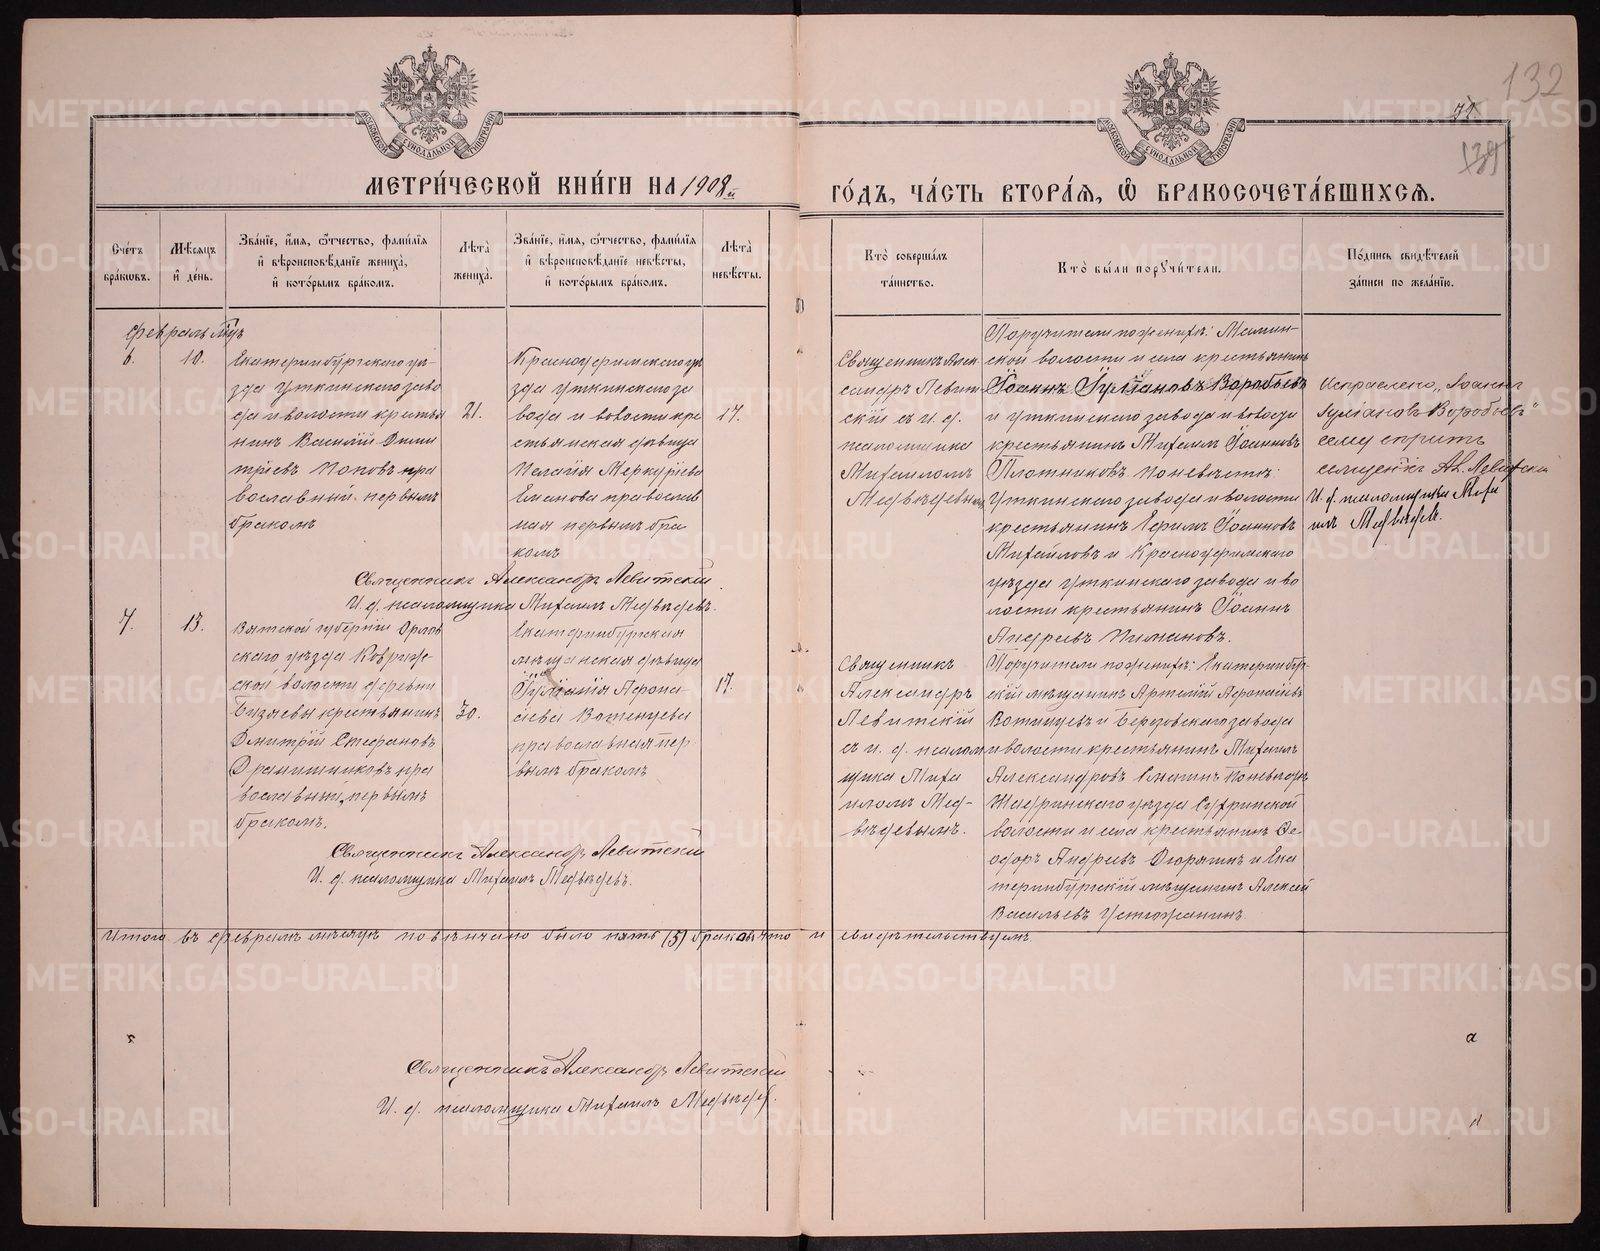 132
139
МЕТРИ́ЧЕСКОЙ КНИ́ГИ НА 1908й
ГО́ДЪ, ЧА́СТЬ ВТОРА́Я, Ѽ БРАКОСОЧЕТА́ВШИХСЯ.
Сче́тъ бра́ковъ.
Мѣ́сяцъ и҆ де́нь.
Зва́нїе, и҆́мя, ѻ҆́тчество, фами́лїя
и҆ вѣроисповѣ́данїе жениха̀,
и҆ кото́рымъ бра́комъ.
Лѣ́та̀ жениха̀.
Зва́нїе, и҆́мя, ѻ҆́тчество, фами́лїя
и҆ вѣроисповѣ́данїе невѣ́сты,
и҆ кото́рымъ бра́комъ.
Лѣ́та̀ невѣ́сты.
Кто̀ соверша́лъ
та́инство.
Кто̀ бы́ли поручи́тели.
По́дпись свидѣ́телей
за́писи по жела́нїю.
Февраль м҃цъ
6.
10.
Екатеринбургскаго уѣ-
зда Уткинскаго заво
да и волости крестья
нинъ Василій Дими
тріевъ Поповъ пра
вославный первымъ
бракомъ
21.
Красноуфимскаго уѣ
зда Уткинскаго за
вода и волости кре
стьянская дѣвица
Пелагія Меркуріева
православ
ная первымъ бра
комъ
17.
Священникъ Алек
сандръ Левит
скій съ и. д.
псаломщика
Михаиломъ
Медвѣдевымъ
Поручители по женихѣ: Мамин-
ской волости и села крестьянинъ
Іоаннъ Іуліановъ Воробьевъ
и Уткинскаго завода и волости
крестьянинъ Михаилъ Іоанновъ
Плотниковъ по невѣстѣ:
Уткинскаго завода и волости
крестьянинъ Ефимъ Іоанновъ
Михайловъ и Красноуфимскаго
уѣзда Уткинскаго завода и во
лости крестьянинъ Іоаннъ
Андреевъ Пимановъ.
Исправлено „Іоаннъ
Іуліановъ Воробьевъ"
сему вѣрить
священникъ Ал. Левитскій
И. д. псаломщика Миха
илъ Медвѣдевъ.
Священникъ Александръ Левитскій
И. д. псаломщика Михаилъ Медвѣдевъ.
7.
13.
Вятской губерніи Орлов
скаго уѣзда
ской волости деревни
Бизяевы крестьянинъ
Дмитрій Стефановъ
пра
вославный, первымъ
бракомъ.
30.
Екатеринбургская
мѣщанская дѣвица
Іуліанія Афона-
сіева Вотинцева
православная пер
вымъ бракомъ
17.
Священникъ
Александръ
Левитскій
съ и. д. псалом
щика Миха
иломъ Мед-
вѣдевымъ.
Поручители по женихѣ: Екатеринбур-
скій мѣщанинъ Артемій Афонасіевъ
Вотинцевъ и Березовскаго завода
и волости крестьянинъ Михаилъ
Александровъ по невѣстѣ
Шадринскаго уѣзда
волости и села крестьянинъ Ѳе-
одоръ Андреевъ и Ека
теринбургскій мѣщанинъ Алексѣй
Васильевъ Устюжанинъ
Священникъ Александръ Левитскій
И. д. псаломщика Михаилъ Медвѣдевъ.
Итого въ Февралѣ мѣсяцѣ повѣнчано было пять (5) браковъ что и свидѣтельствуемъ
Священникъ Александръ Левитскій
И. д. псаломщика Михаилъ Медвѣдевъ.
METRIKI.GASO-URAL.RU